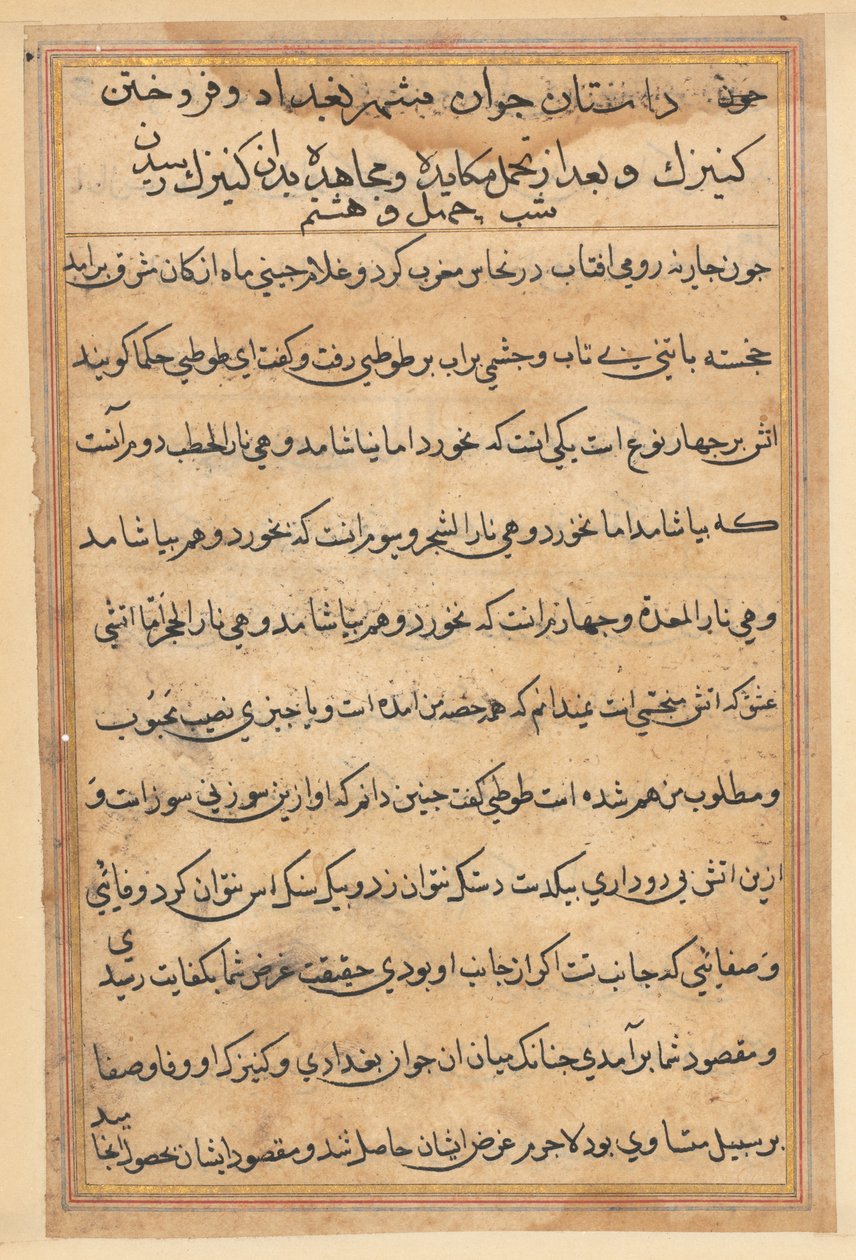 داستان جوان بشهر بغداد و فروختن
کنیزک و بعد از تحمل مکایده و مجاهده بدان کنیزک رسیدن
شب چهل و هشتم
جون جاریه رومی افتاب در نخاس مغرب کرد و غلام جینی ماه از کان مشرق برامد
خجسته باتنی بی تاب و جشمی پراب بر طوطی رفت و کفت ای طوطی حکما کویند
اتش بر جهار نوع است یکی انست که بخورد اما نیاشامد و هی نار الحطب دوم آنست
که بیاشامد اما نخورد و هی نار الشجر و سوم انست که بخورد و هم بیاشامد
و هی نار المعدة و جهارم انست که نخورد و هم نیاشامد و هی نار الحجر اَمّا اتشی
عشق که اتش منجسی است نمیدانم که همه حصه من امده است و یا جیزی نصیب مَحبُوب
و مطلوب من هم شده است طوطی کفت جنین دانم که او ازین سوز نی سوز است وَ
ازین اتش بی دود اری بیکدست دستک نتوان زد و بیک سنک اس نتوان کرد وفائی
وَ صفائی که جانب تست اکر از جانب او بودی حقیقت غرض شما بکفایت رسیدی
و مقصود شما برآمدی جنانک میان ان جوان بغدادی و کنیزک او وفا و صفا
بر سبیل متساوی بود لاجرم غرض ایشان حاصل شد و مقصود ایشان بحصول انجامید